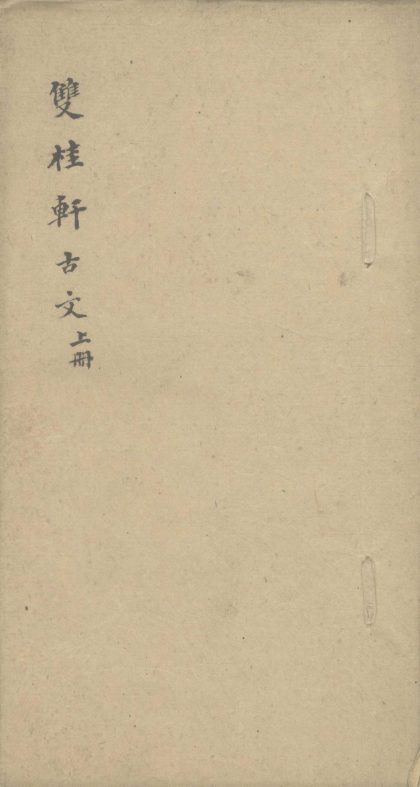 雙桂軒古文上冊